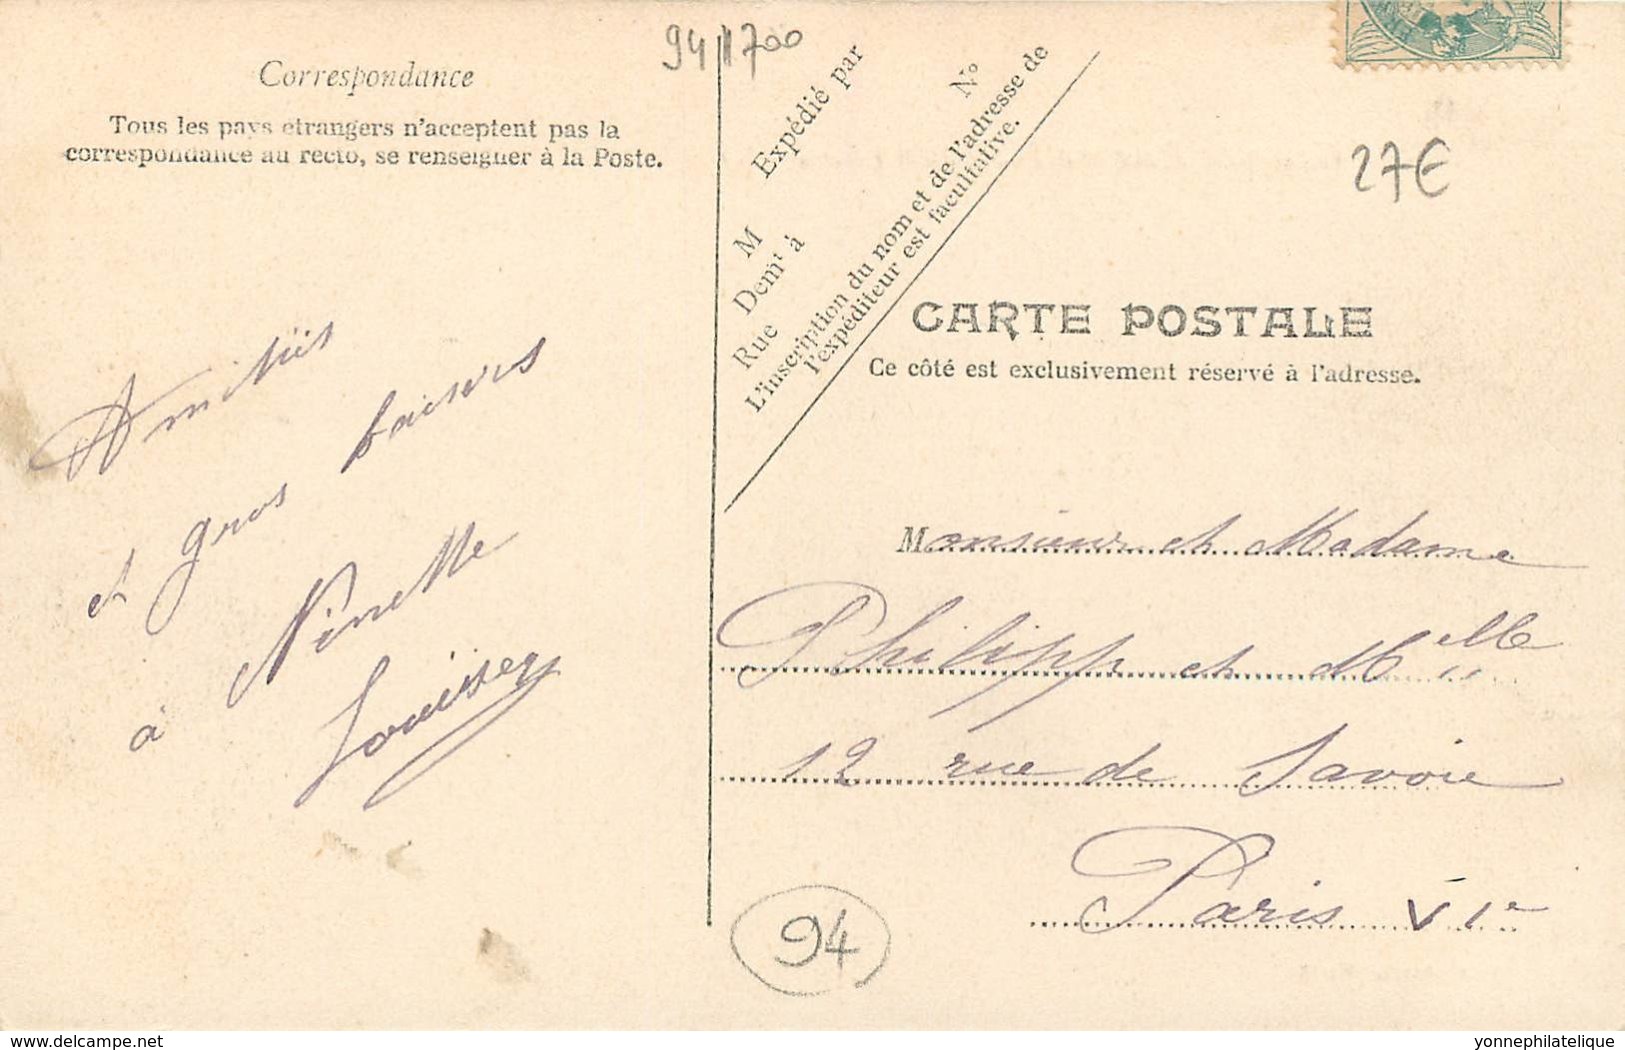 94 11700
Correspondance
Tous les pays etrangers n'acceptent pas la
correspondance au recto, se renseigner à la Poste.
Amitiés
et gros baisers
à Ninette
Expédié par
M
Demt à
Rue
No
L'inscription du nom et de l'adresse de
l'expéditeur est facultative.
27€
CARTE POSTALE
Ce côté est exclusivement réservé à l'adresse.
Monsieur et Madame
Philipp et Melle "
12 rue de Savoie
Paris VIe
94
delcampe.net
yonnephilatelique